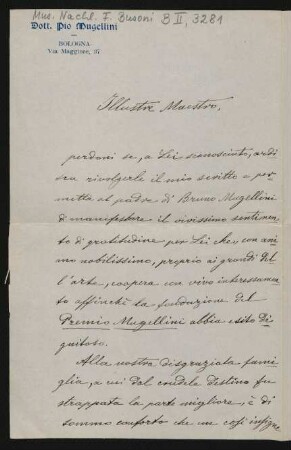 Mus. Nachl. F. Busoni B II, 3281
Dott. Pio Mugellini
BOLOGNA
Via Maggiore, 37
Illustre Maestro,
perdoni se, a Lei sconosciuto, ardi
sca rivolgerle il mio scritto e per
metta al padre di Bruno Mugellini
di manifestare il vivissimo sentimen
to di gratitudine per Lei che, con ani
mo nobilissimo, proprio ai grandi del
l'arte, coopera con vivo interessamen
to affinchè la fondazione del
Premio Mugellini abbia esito di
gnitoso.
Alla nostra disgraziata fami
glia, a cui dal crudele destino fu
strappata la parte migliore, è di
sommo conforto che un così insigne